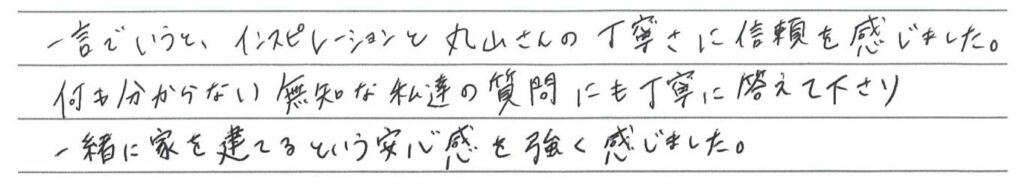 一言でいうと、インスピレーションと丸山さんの丁寧さに信頼を感じました。
何も分からない無知な私達の質問にも丁寧に答えて下さり
一緒に家を建てるという安心感を強く感じました。